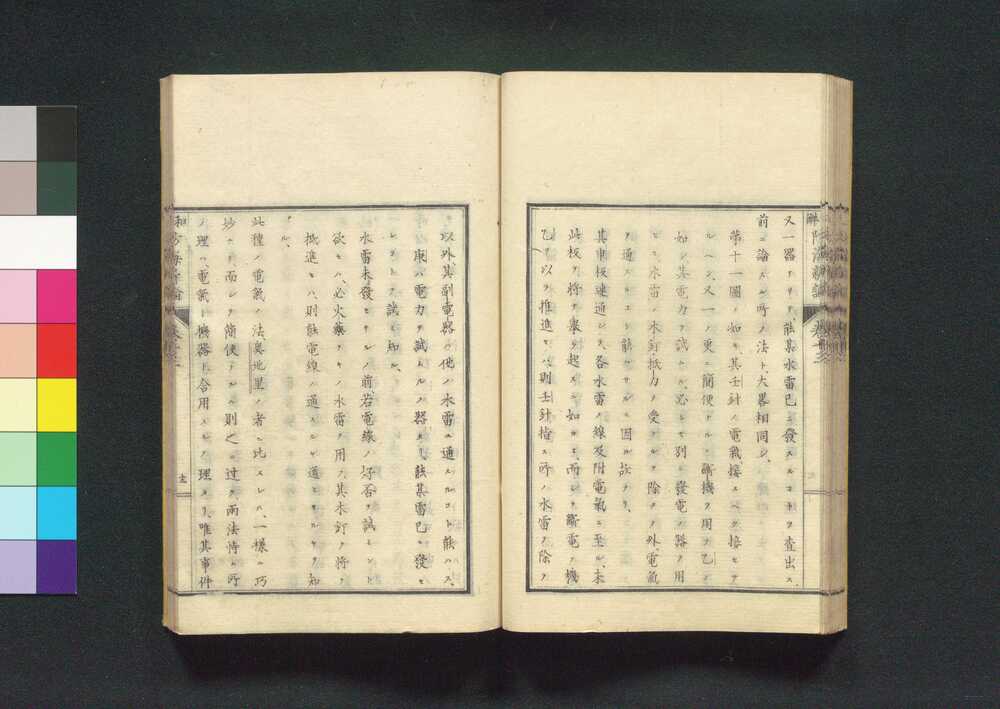 又一器アリ、能某水雷已ニ發スルコトヲ査出ス、
前ニ論スル所ノ法ト、大畧相同シ、
第十一圖ノ如キ其壬針ノ電氣接スベク接セサ
ルヘシ、又一ノ更ニ簡便ナルハ、斷機ヲ用フ乙
如シ其電力ヲ試ムル、必シモ別ニ發電ノ器ヲ用
ヒス、水雷ノ木釘抵力ヲ受クルヲ除クノ外、電氣
ヲ通スルコト能ハサルニ因ル故ナリ、
其車板速通シ、各水雷ノ線及附電氣ニ至ル、未
此板ヲ將テ衆ヲ起ス如キニ、而シテ斷電ノ機
乙ヲ以テ推進セハ、則壬針指ス所ノ水雷ヲ除ク
ノ以外、其副電器ハ他ノ水雷ニ通スルコト能ハス、
庚ハ電力ヲ試ムルノ器ナリ、能某雷已ニ發セ
シヤヲ試ミ知ル、
水雷未發セサルノ前、若電線ノ好否ヲ試ミント
欲セハ、必火藥ナキノ水雷ヲ用フ、其木釘ヲ將テ
抵進セハ、則能電線ノ通スルヤ通セサルヤヲ知
ル、
此種ノ電氣ノ法、奧地里ノ者ニ比スレハ、一樣ニ巧
妙ニシテ、而シテ簡便ナルハ則之ニ过ク、兩法恃ム所
ノ理ハ、電氣ト機器ト合用スルノ理ナリ、唯其事件